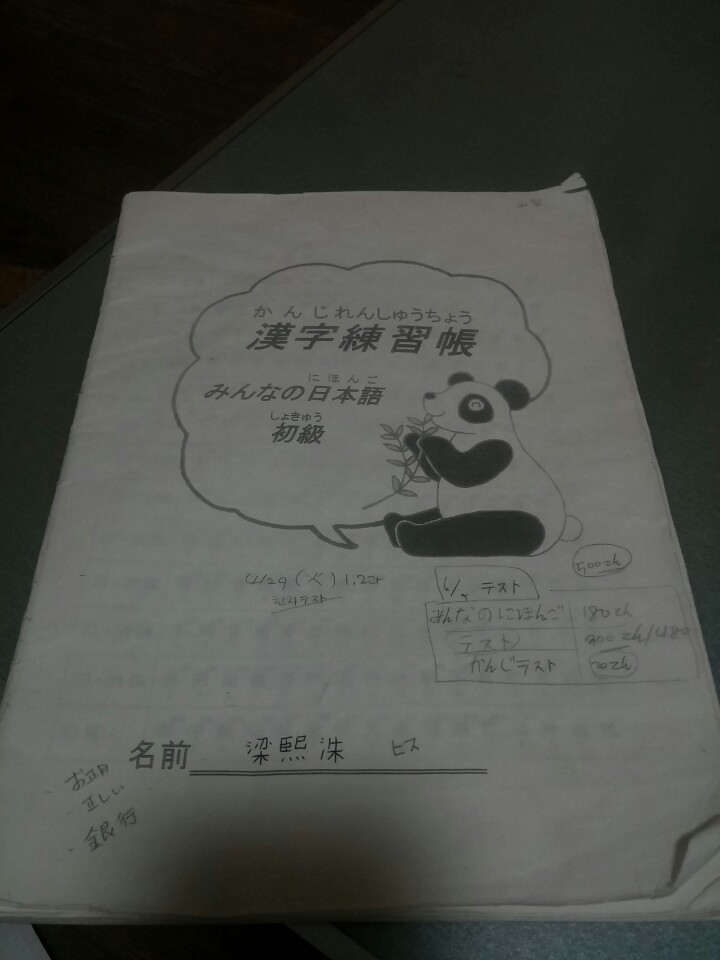 かんじれんしゅうちょう
漢字練習帳
にほんご
みんなの日本語
しょきゅう
初級
500てん
4/29 (火) 1,2과
한자テスト
テスト
みんなのにほんご 180てん
テスト 300てん/480
かんじテスト 20てん
名前 梁熙洙 ヒス
お正月
正しい
銀行